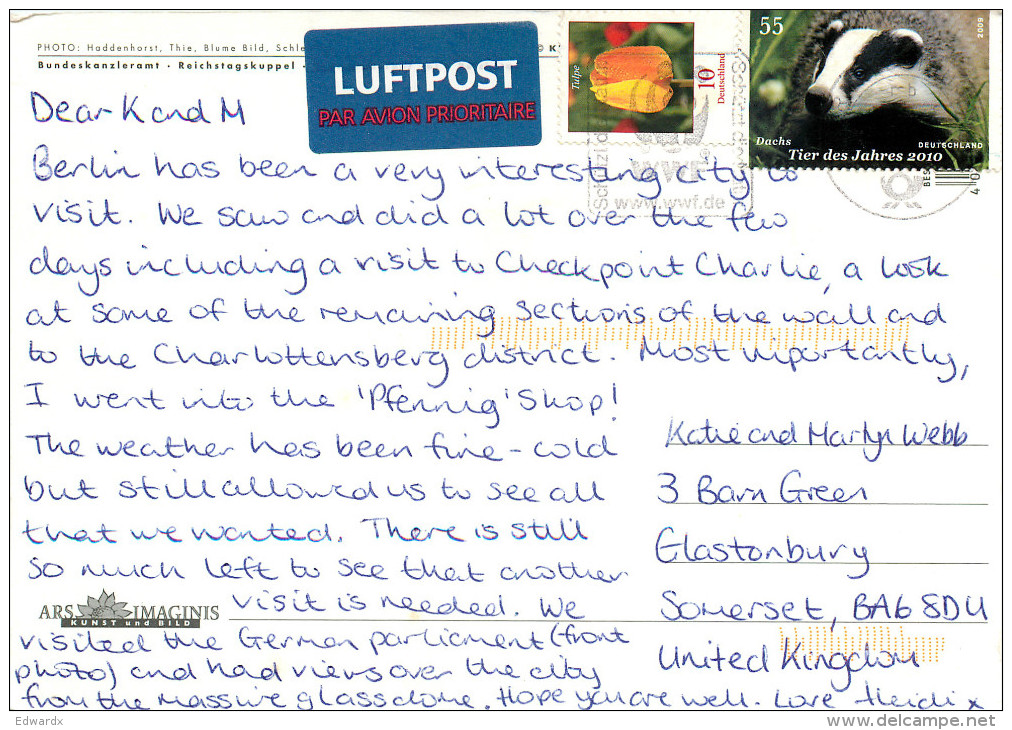 PHOTO: Haddenhorst, Thie, Blume Bild, Schle
Bundeskanzleramt · Reichstagskuppel ·
LUFTPOST
PAR AVION PRIORITAIRE
Tulpe
10
Deutschland
55
2009
Dachs
DEUTSCHLAND
Tier des Jahres 2010
WWF
www.wwf.de
Dear K and M
Berlin has been a very interesting city to
visit. We saw and did a lot over the few
days including a visit to Checkpoint Charlie, a look
at some of the remaining sections of the wall and
to the Charlottensberg district. Most importantly,
I went into the 'Pfennig' Shop!
The weather has been fine - cold
but still allowed us to see all
that we wanted. There is still
so much left to see that another
visit is needed. We
visited the German parliament (front
photo) and had views over the city
from the massive glass dome. Hope you are well. Love Heidi x
Katie and Martyn Webb
3 Barn Green
Glastonbury
Somerset, BA6 8DU
United Kingdom
ARS IMAGINIS
KUNST und BILD
Edwardx
delcampe.net